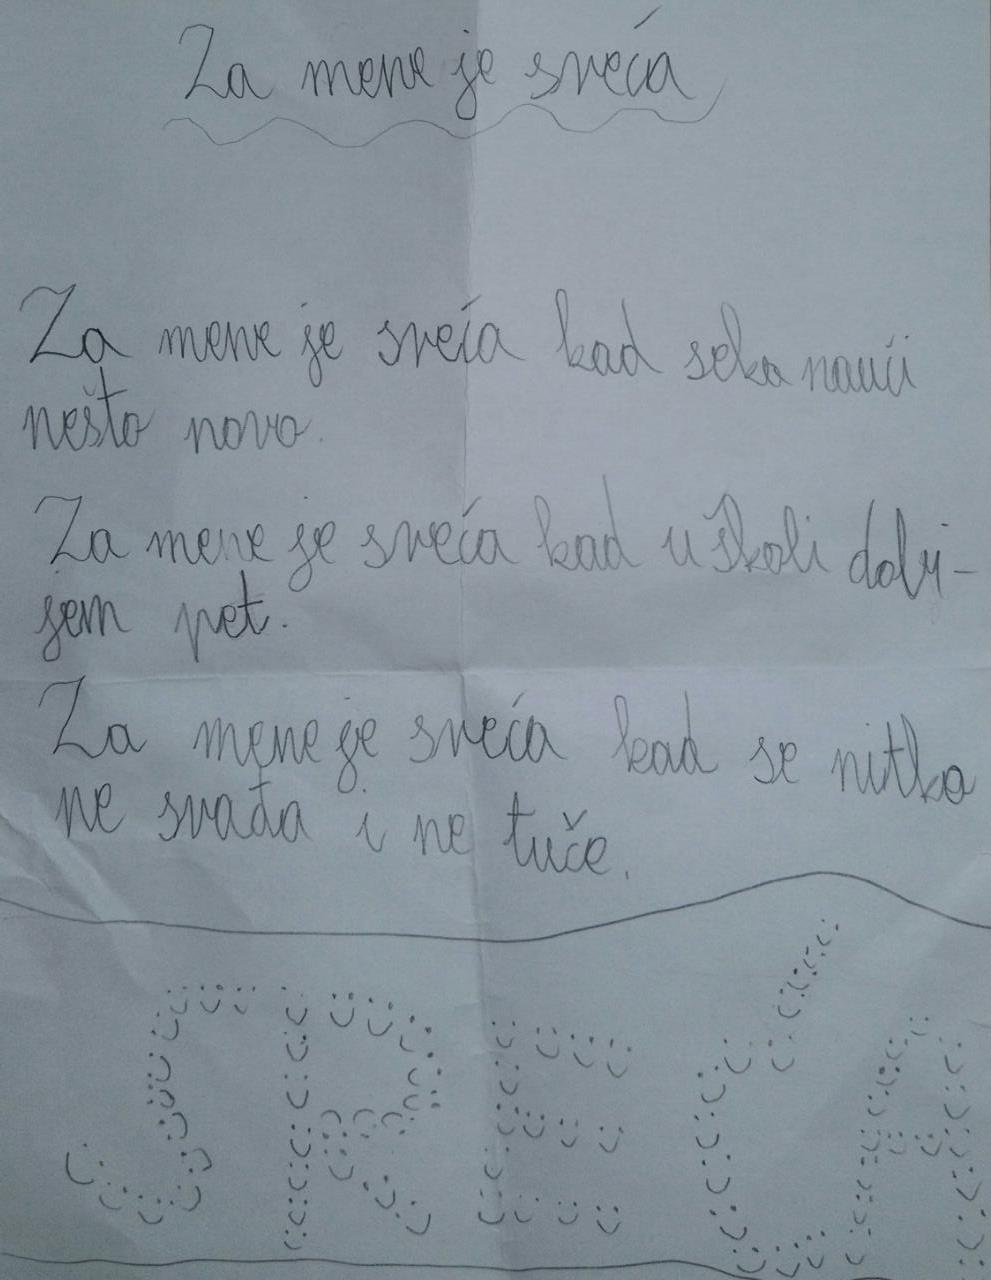 Za mene je sreća
Za mene je sreća kad seka nauči
nešto novo.
Za mene je sreća kad u školi dobi-
jem pet.
Za mene je sreća kad se nitko
ne svađa i ne tuče.
SREĆA